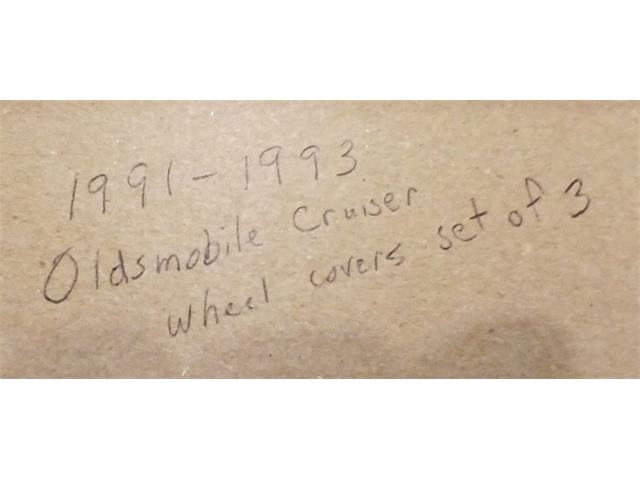 1991-1993
Oldsmobile Cruiser
wheel covers set of 3